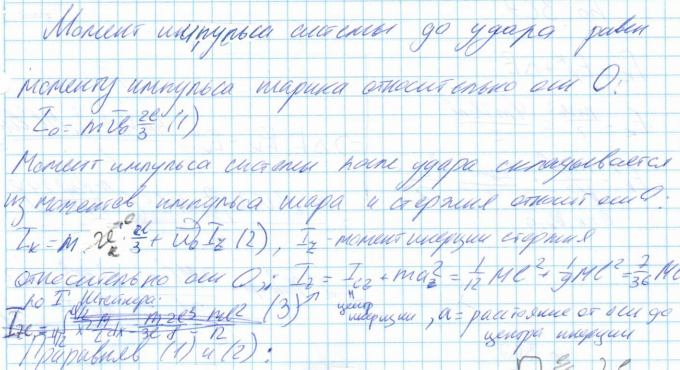 Момент импульса системы до удара равен
моменту импульса шарика относительно оси О:
I₀ = m v₀ 2l/3 (1)
Момент импульса системы после удара складывается
из моментов импульса шара и стержня относит оси О:
2l/3 + I_z (2), I_z - момент инерции стержня
относительно оси О, I_z = I_c + ma² = 1/12 Ml² + 1/9 Ml² = 7/36 M
по Т Штейнера. (3) центр инерции, a = расстояние от оси до
центра инерции
Приравняв (1) и (2):